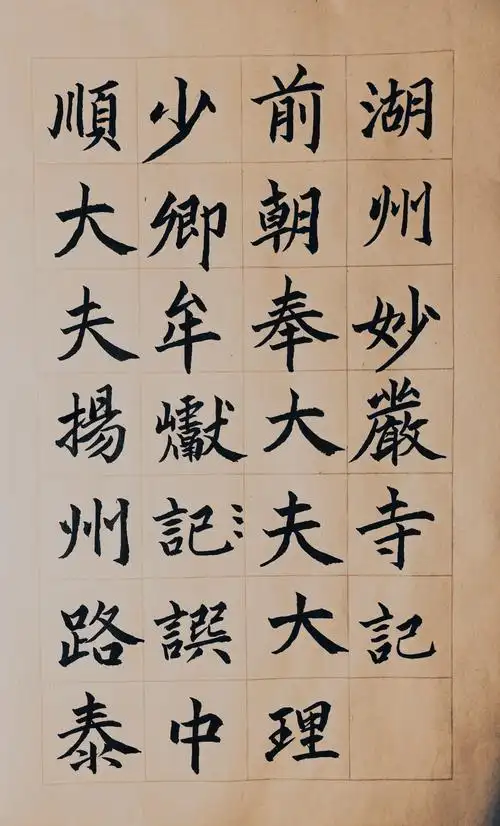 湖州妙嚴寺記
前朝奉大夫大理
少卿牟巘記譔中
順大夫揚州路泰